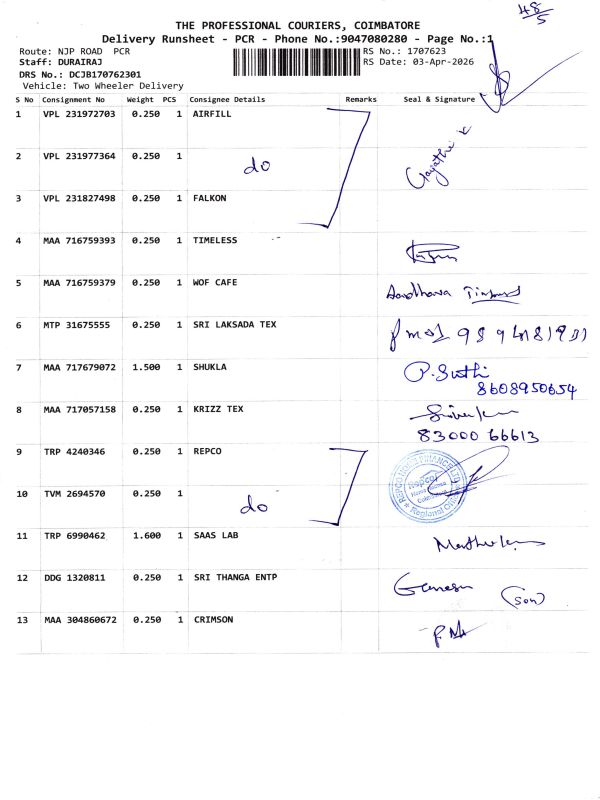 48/5
THE PROFESSIONAL COURIERS, COIMBATORE
Delivery Runsheet - PCR - Phone No.:9047080280 - Page No.:1
Route: NJP ROAD PCR RS No.: 1707623
Staff: DURAIRAJ RS Date: 03-Apr-2026
DRS No.: DCJB170762301
Vehicle: Two Wheeler Delivery
S No Consignment No Weight PCS Consignee Details Remarks Seal & Signature
1 VPL 231972703 0.250 1 AIRFILL
2 VPL 231977364 0.250 1 do Gayathri
3 VPL 231827498 0.250 1 FALKON
4 MAA 716759393 0.250 1 TIMELESS
5 MAA 716759379 0.250 1 WOF CAFE Aadhava
6 MTP 31675555 0.250 1 SRI LAKSADA TEX
7 MAA 717679072 1.500 1 SHUKLA P. Suthi
8608950654
8 MAA 717057158 0.250 1 KRIZZ TEX
83000 66613
9 TRP 4240346 0.250 1 REPCO
10 TVM 2694570 0.250 1 do
11 TRP 6990462 1.600 1 SAAS LAB
12 DDG 1320811 0.250 1 SRI THANGA ENTP Ganesan (Son)
13 MAA 304860672 0.250 1 CRIMSON